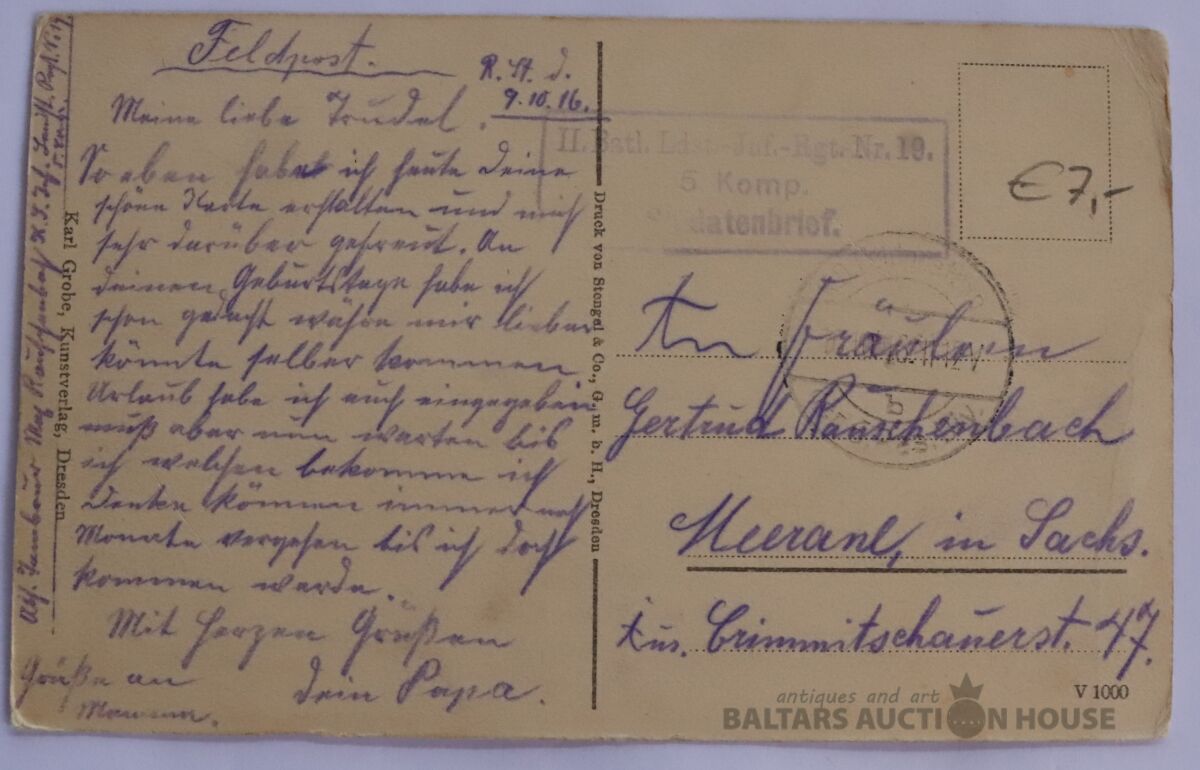 Feldpost.
R. St. d.
9.10.16.
Meine liebe Trudel.
So eben habe ich heute Deine
schöne Karte erhalten und mich
sehr darüber gefreut. An
deinen Geburtstage habe ich
schon gedacht währe mir lieber
könnte selber kommen
Urlaub habe ich auch eingegeben
muß aber nun warten bis
ich welchen bekomme ich
denke können immer noch
Monate vergehen bis ich doch
kommen werde.
Mit herzen Grüßen
dein Papa.
Grüße an
Mamma.
Max Rauschenbach
Karl Grobe, Kunstverlag, Dresden
Druck von Stengel & Co., G. m. b. H., Dresden
II. Batl. Ldst.-Inf.-Rgt. Nr. 19.
5 Komp.
€7,-
An Fräulein
Gertrud Rauschenbach
Meerane, in Sachs.
Crimmitschauerst. 47.
V 1000
antiques and art
BALTARS AUCTION HOUSE